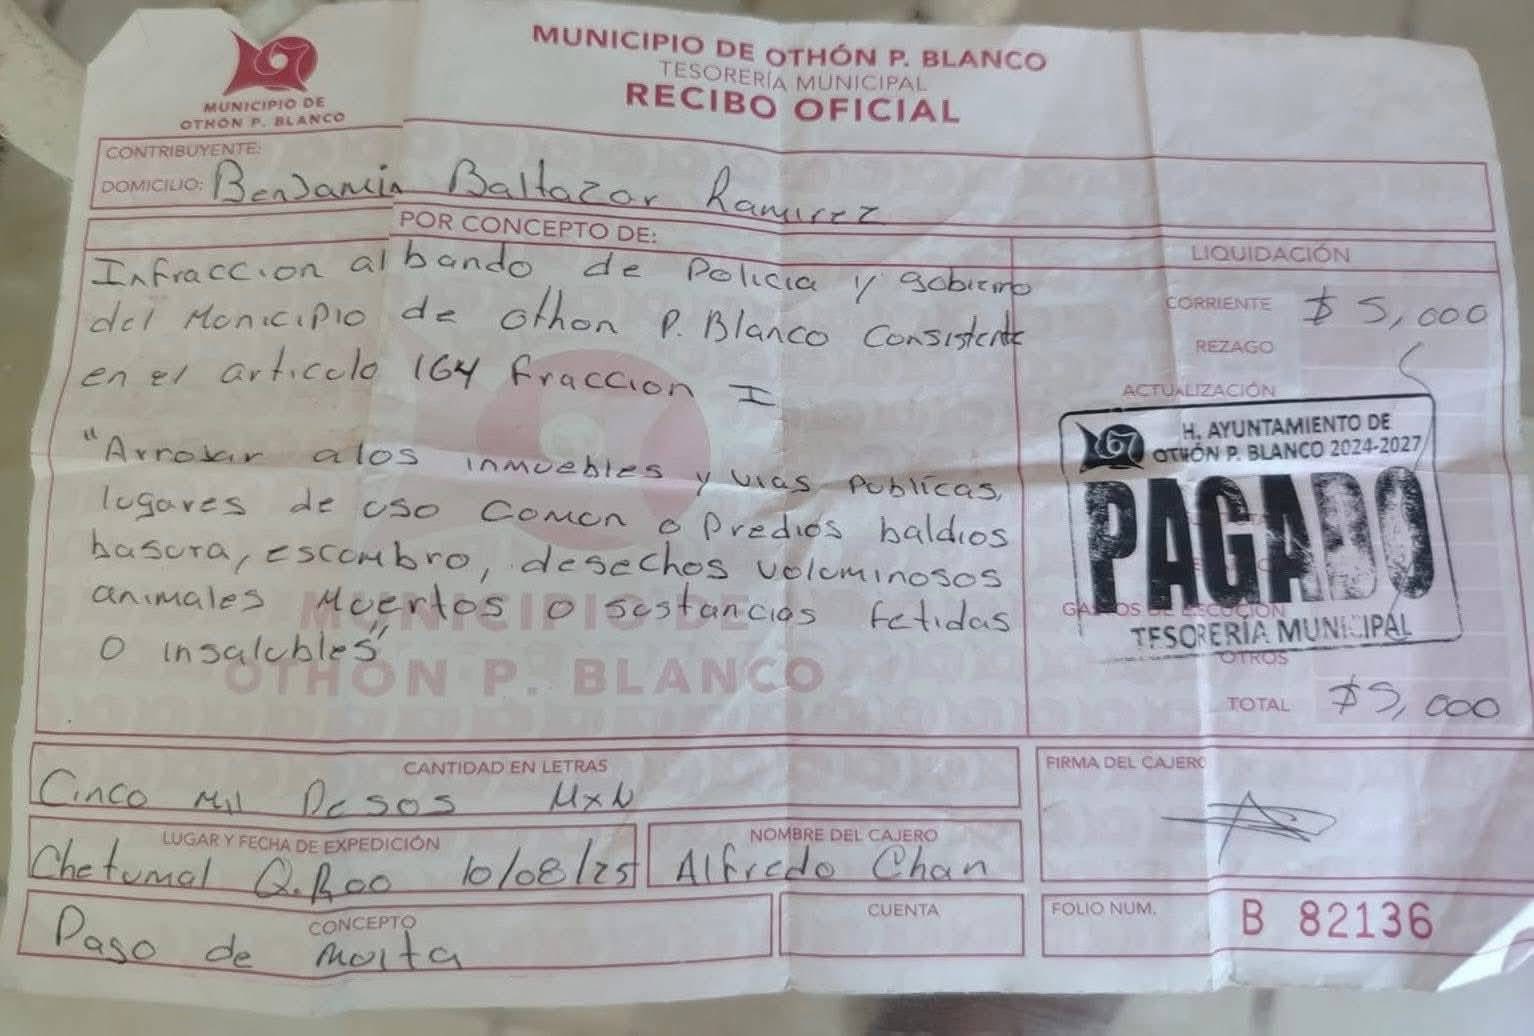 MUNICIPIO DE
OTHÓN P. BLANCO
MUNICIPIO DE OTHÓN P. BLANCO
TESORERÍA MUNICIPAL
RECIBO OFICIAL
CONTRIBUYENTE:
DOMICILIO: Benjamin Baltazar Ramirez
POR CONCEPTO DE:
Infraccion al bando de Policia y gobierno
del Municipio de Othon P. Blanco Consistente
en el articulo 164 fraccion I
"Arrojar a los inmuebles y vias publicas,
lugares de uso comun o predios baldios
basura, escombro, desechos voluminosos
animales Muertos o sustancias fetidas
o insalubles"
MUNICIPIO DE
OTHÓN P. BLANCO
LIQUIDACIÓN
CORRIENTE $ 5,000
REZAGO
ACTUALIZACIÓN
H. AYUNTAMIENTO DE
OTHÓN P. BLANCO 2024-2027
PAGADO
GASTOS DE EJECUCIÓN
TESORERÍA MUNICIPAL
OTROS
TOTAL $5,000
CANTIDAD EN LETRAS
Cinco Mil Pesos MXN
LUGAR Y FECHA DE EXPEDICIÓN
Chetumal Q.Roo 10/08/25
NOMBRE DEL CAJERO
Alfredo Chan
FIRMA DEL CAJERO
CONCEPTO
Pago de Multa
CUENTA
FOLIO NUM. B 82136